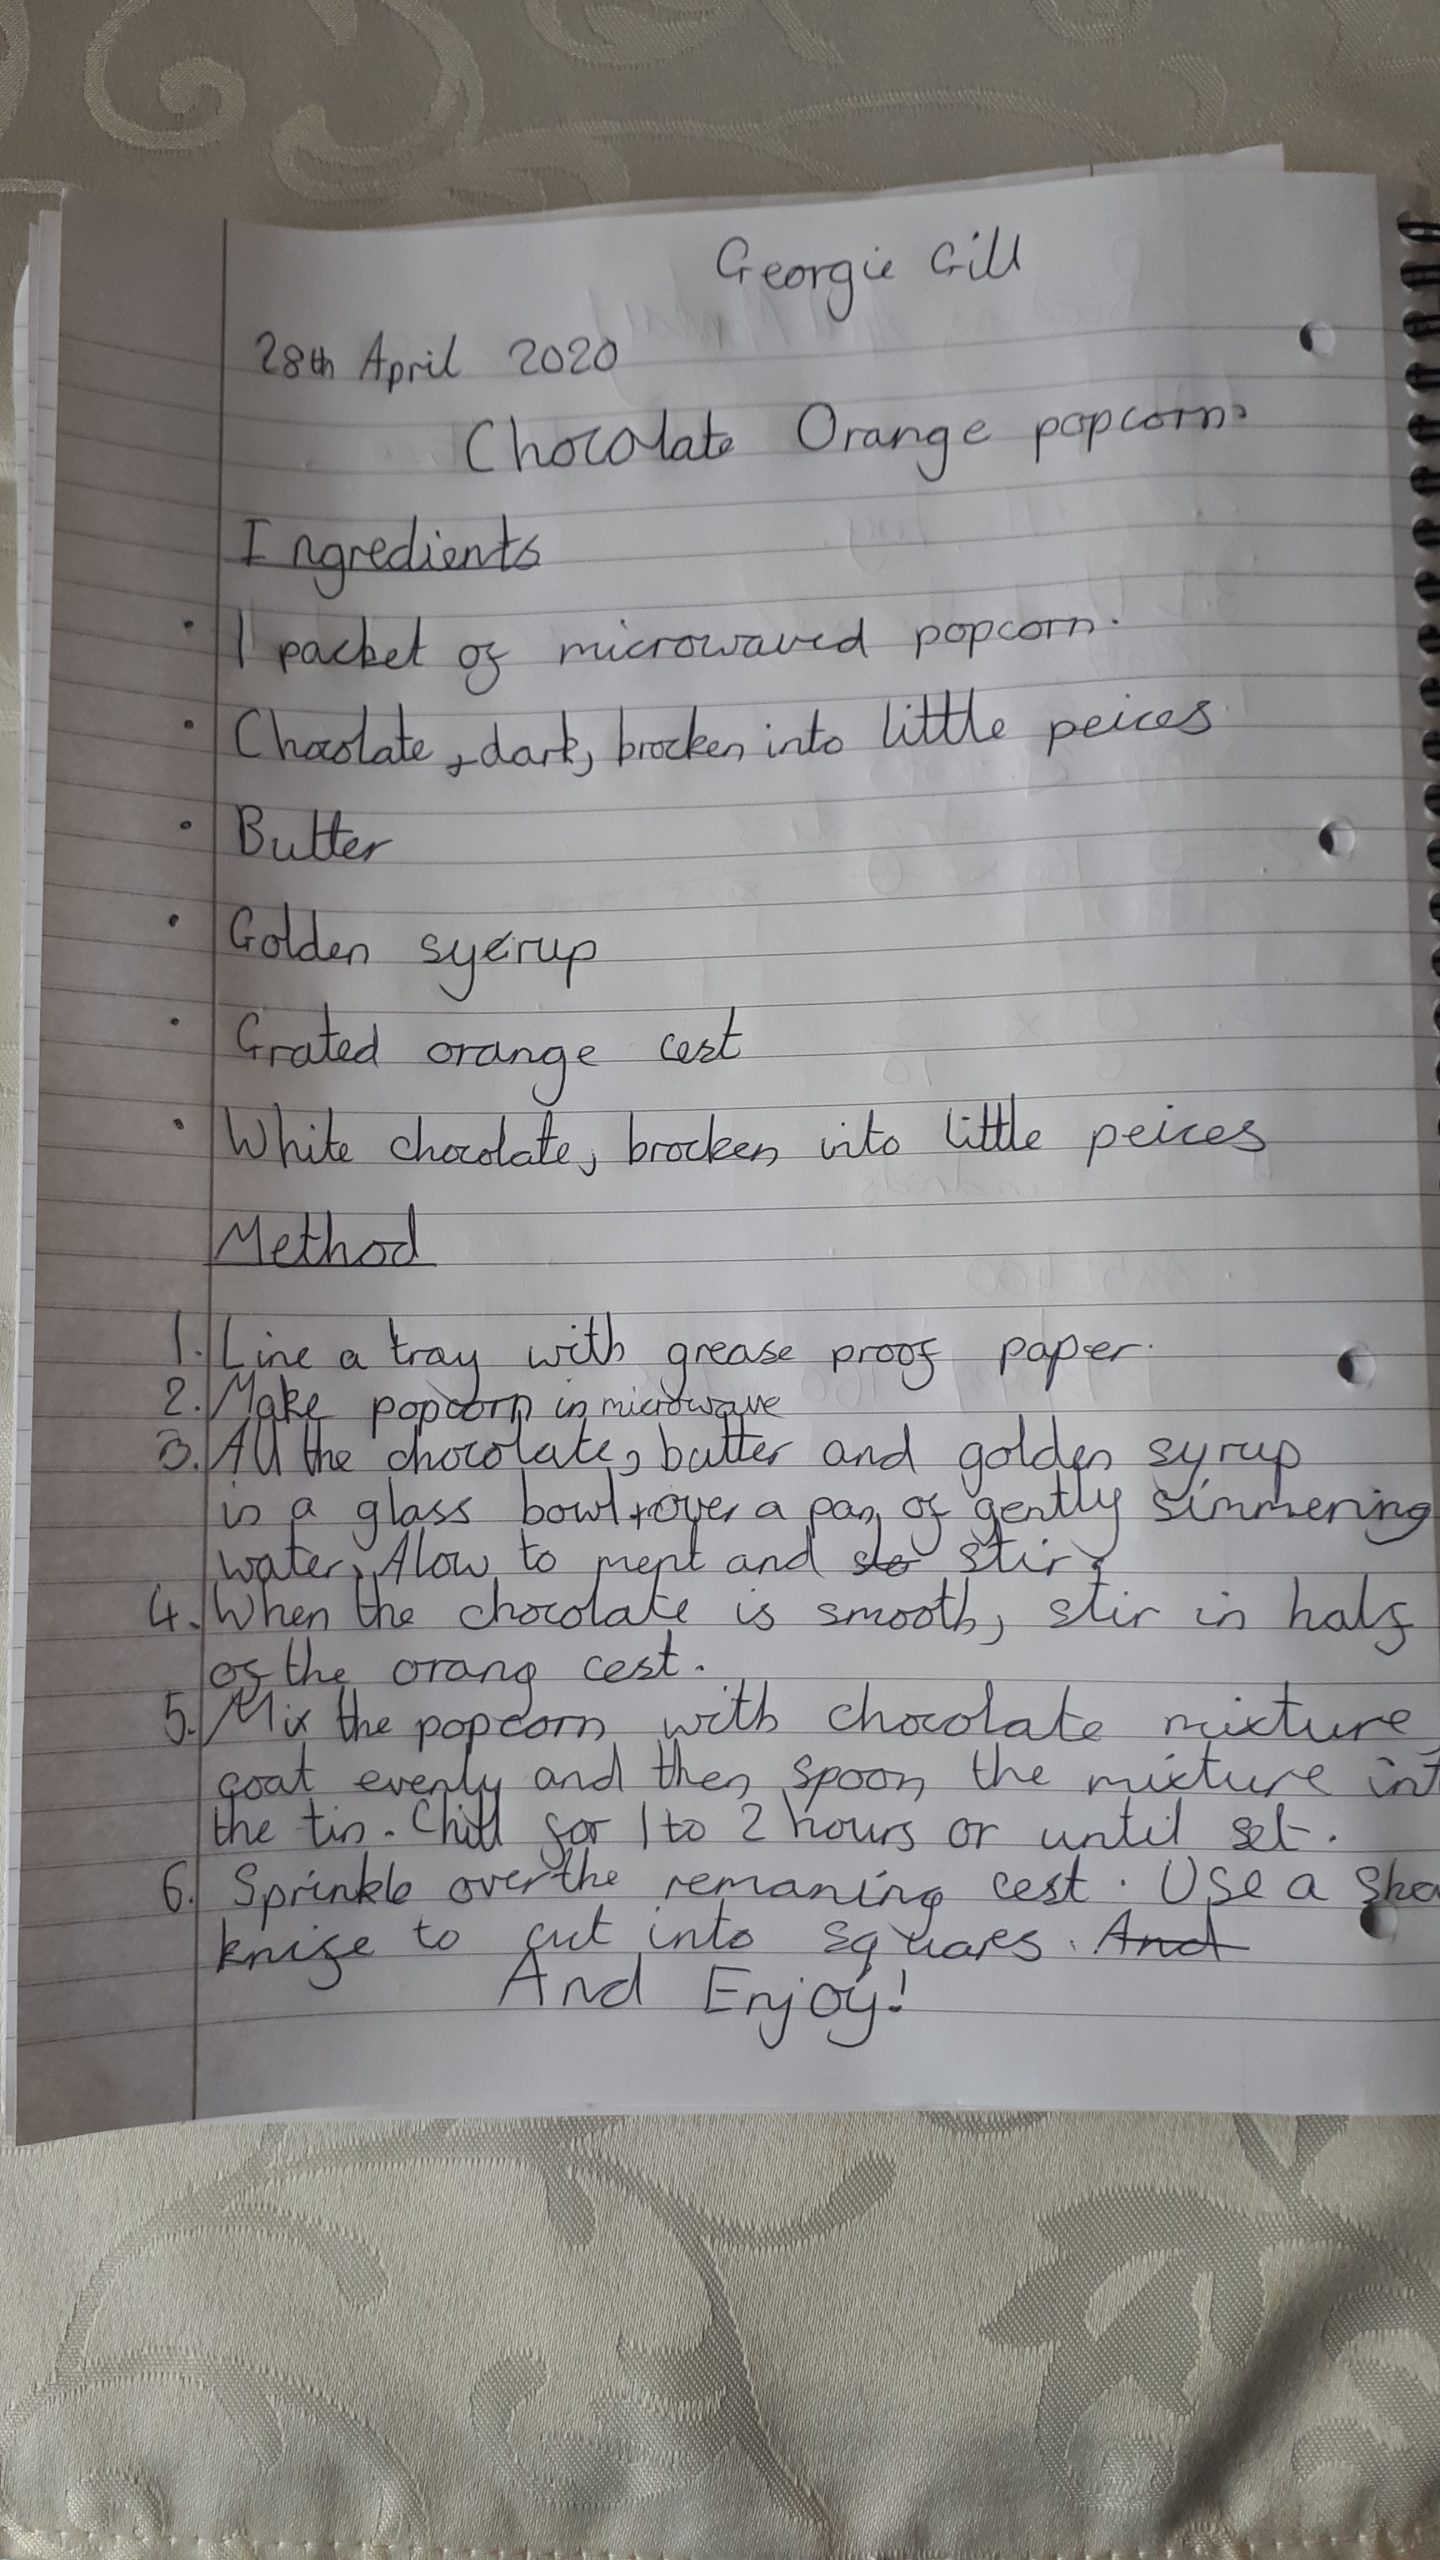 Georgie Gill
28th April 2020
Chocolate Orange popcorn.
Ingredients
• 1 packet of microwaved popcorn.
• Chocolate, dark, brocken into little peices
• Butter
• Golden syerup
• Grated orange cest
• White chocolate, brocken into little peices
Method
1. Line a tray with grease proof paper.
2. Make popcorn in microwave
3. All the chocolate, butter and golden syrup
in a glass bowl over a pan of gently simmering
water. Alow to melt and stir.
4. When the chocolate is smooth, stir in half
of the orang cest.
5. Mix the popcorn with chocolate mixture,
coat evenly and then spoon the mixture int
the tin. Chill for 1 to 2 hours or until set.
6. Sprinkle over the remaning cest. Use a sha
knife to cut into squares. And
And Enjoy!